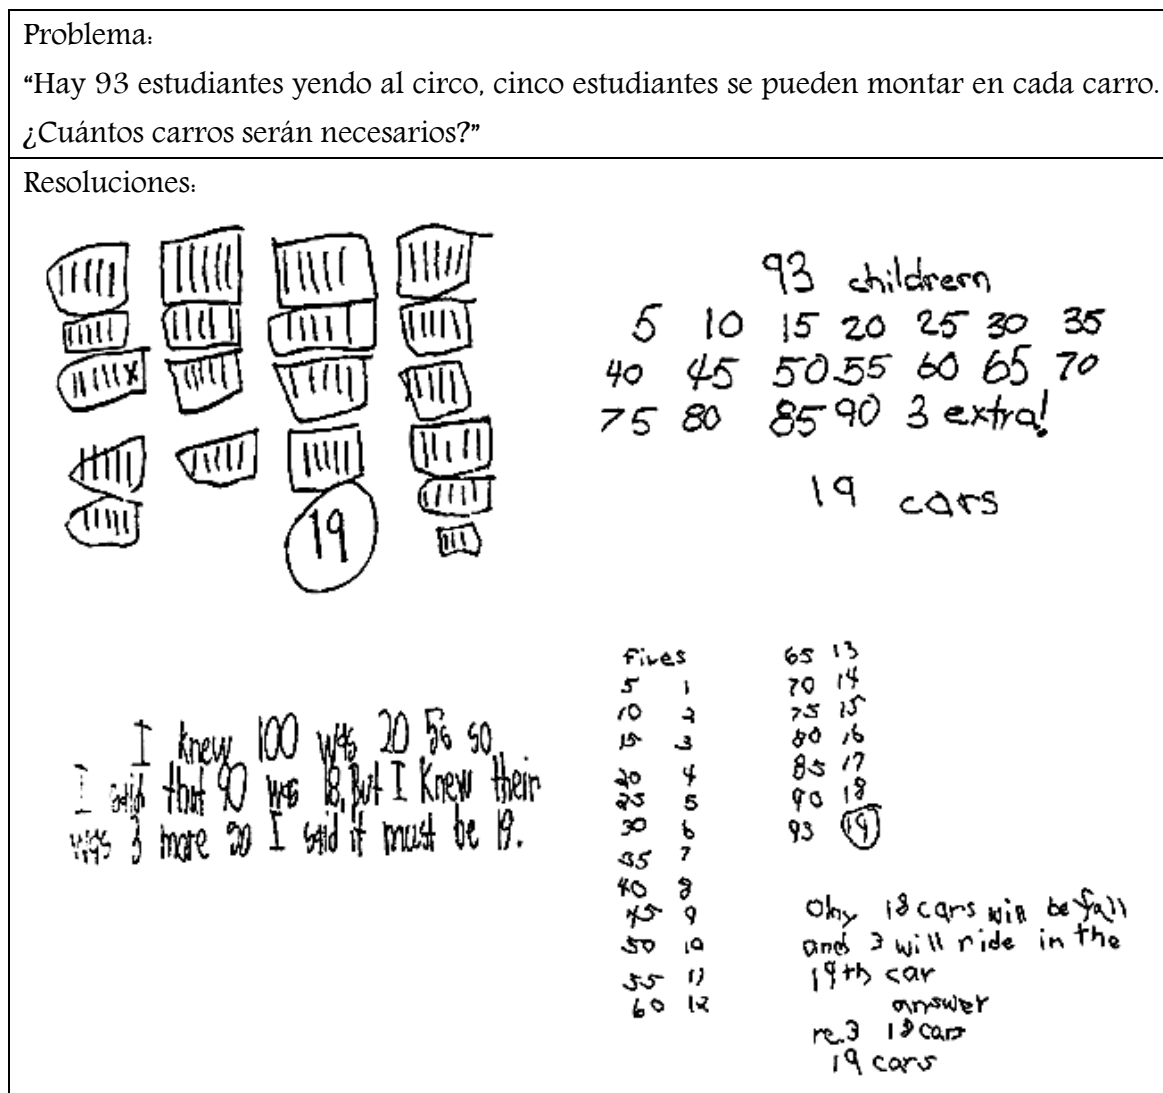 Problema:
“Hay 93 estudiantes yendo al circo, cinco estudiantes se pueden montar en cada carro.
¿Cuántos carros serán necesarios?”
Resoluciones:
19
93 childrern
5 10 15 20 25 30 35
40 45 50 55 60 65 70
75 80 85 90 3 extra!
19 cars
I knew 100 was 20 5s so
I said that 90 was 18. But I Knew their
was 3 more so I said it must be 19.
Fives
5 1
10 2
15 3
20 4
25 5
30 6
35 7
40 8
45 9
50 10
55 11
60 12
65 13
70 14
75 15
80 16
85 17
90 18
93 19
18 cars will be full
and 3 will ride in the
19th car
answer
re.3 18 cars
19 cars